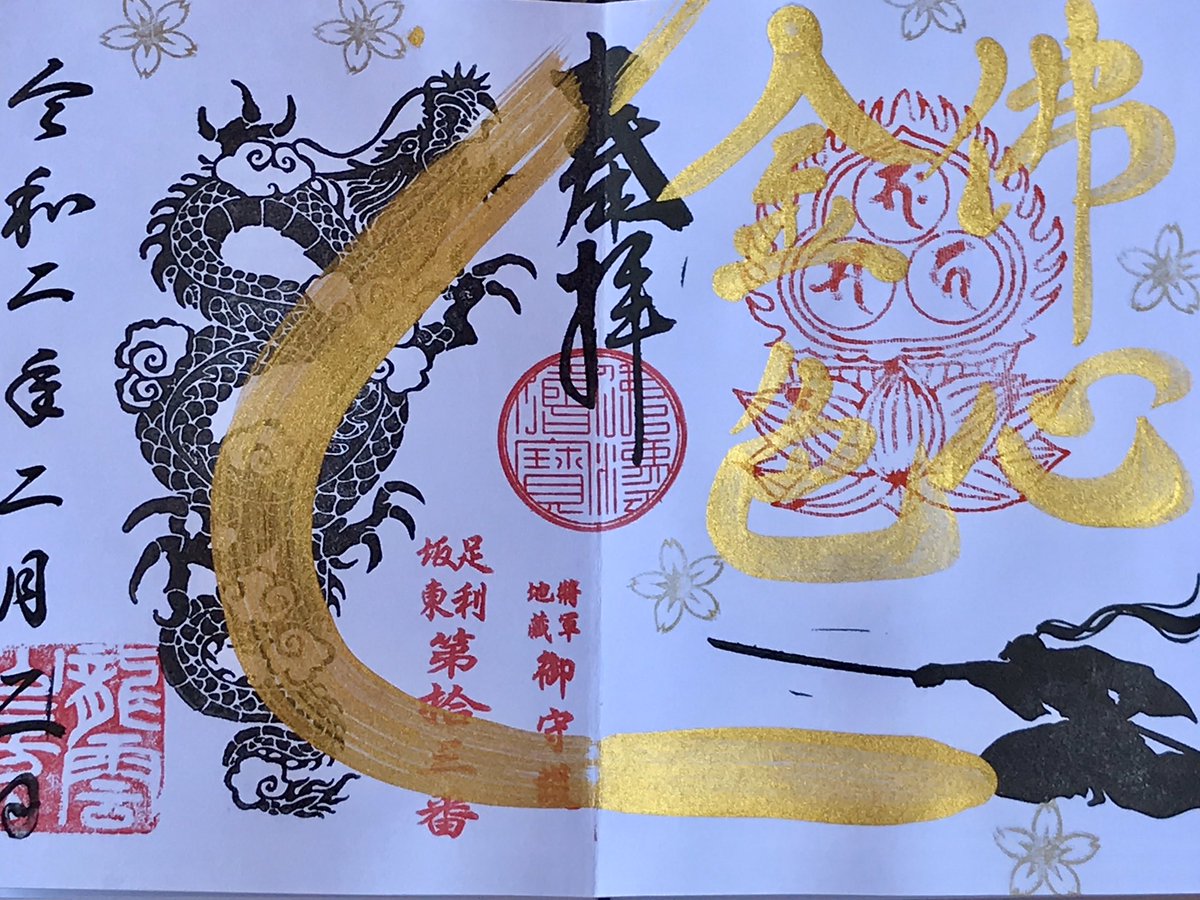 佛心
金色
奉拝
佛法僧寶
將軍
地藏
御守護
足利
坂東
第拾三番
令和二年二月二日
龍雲